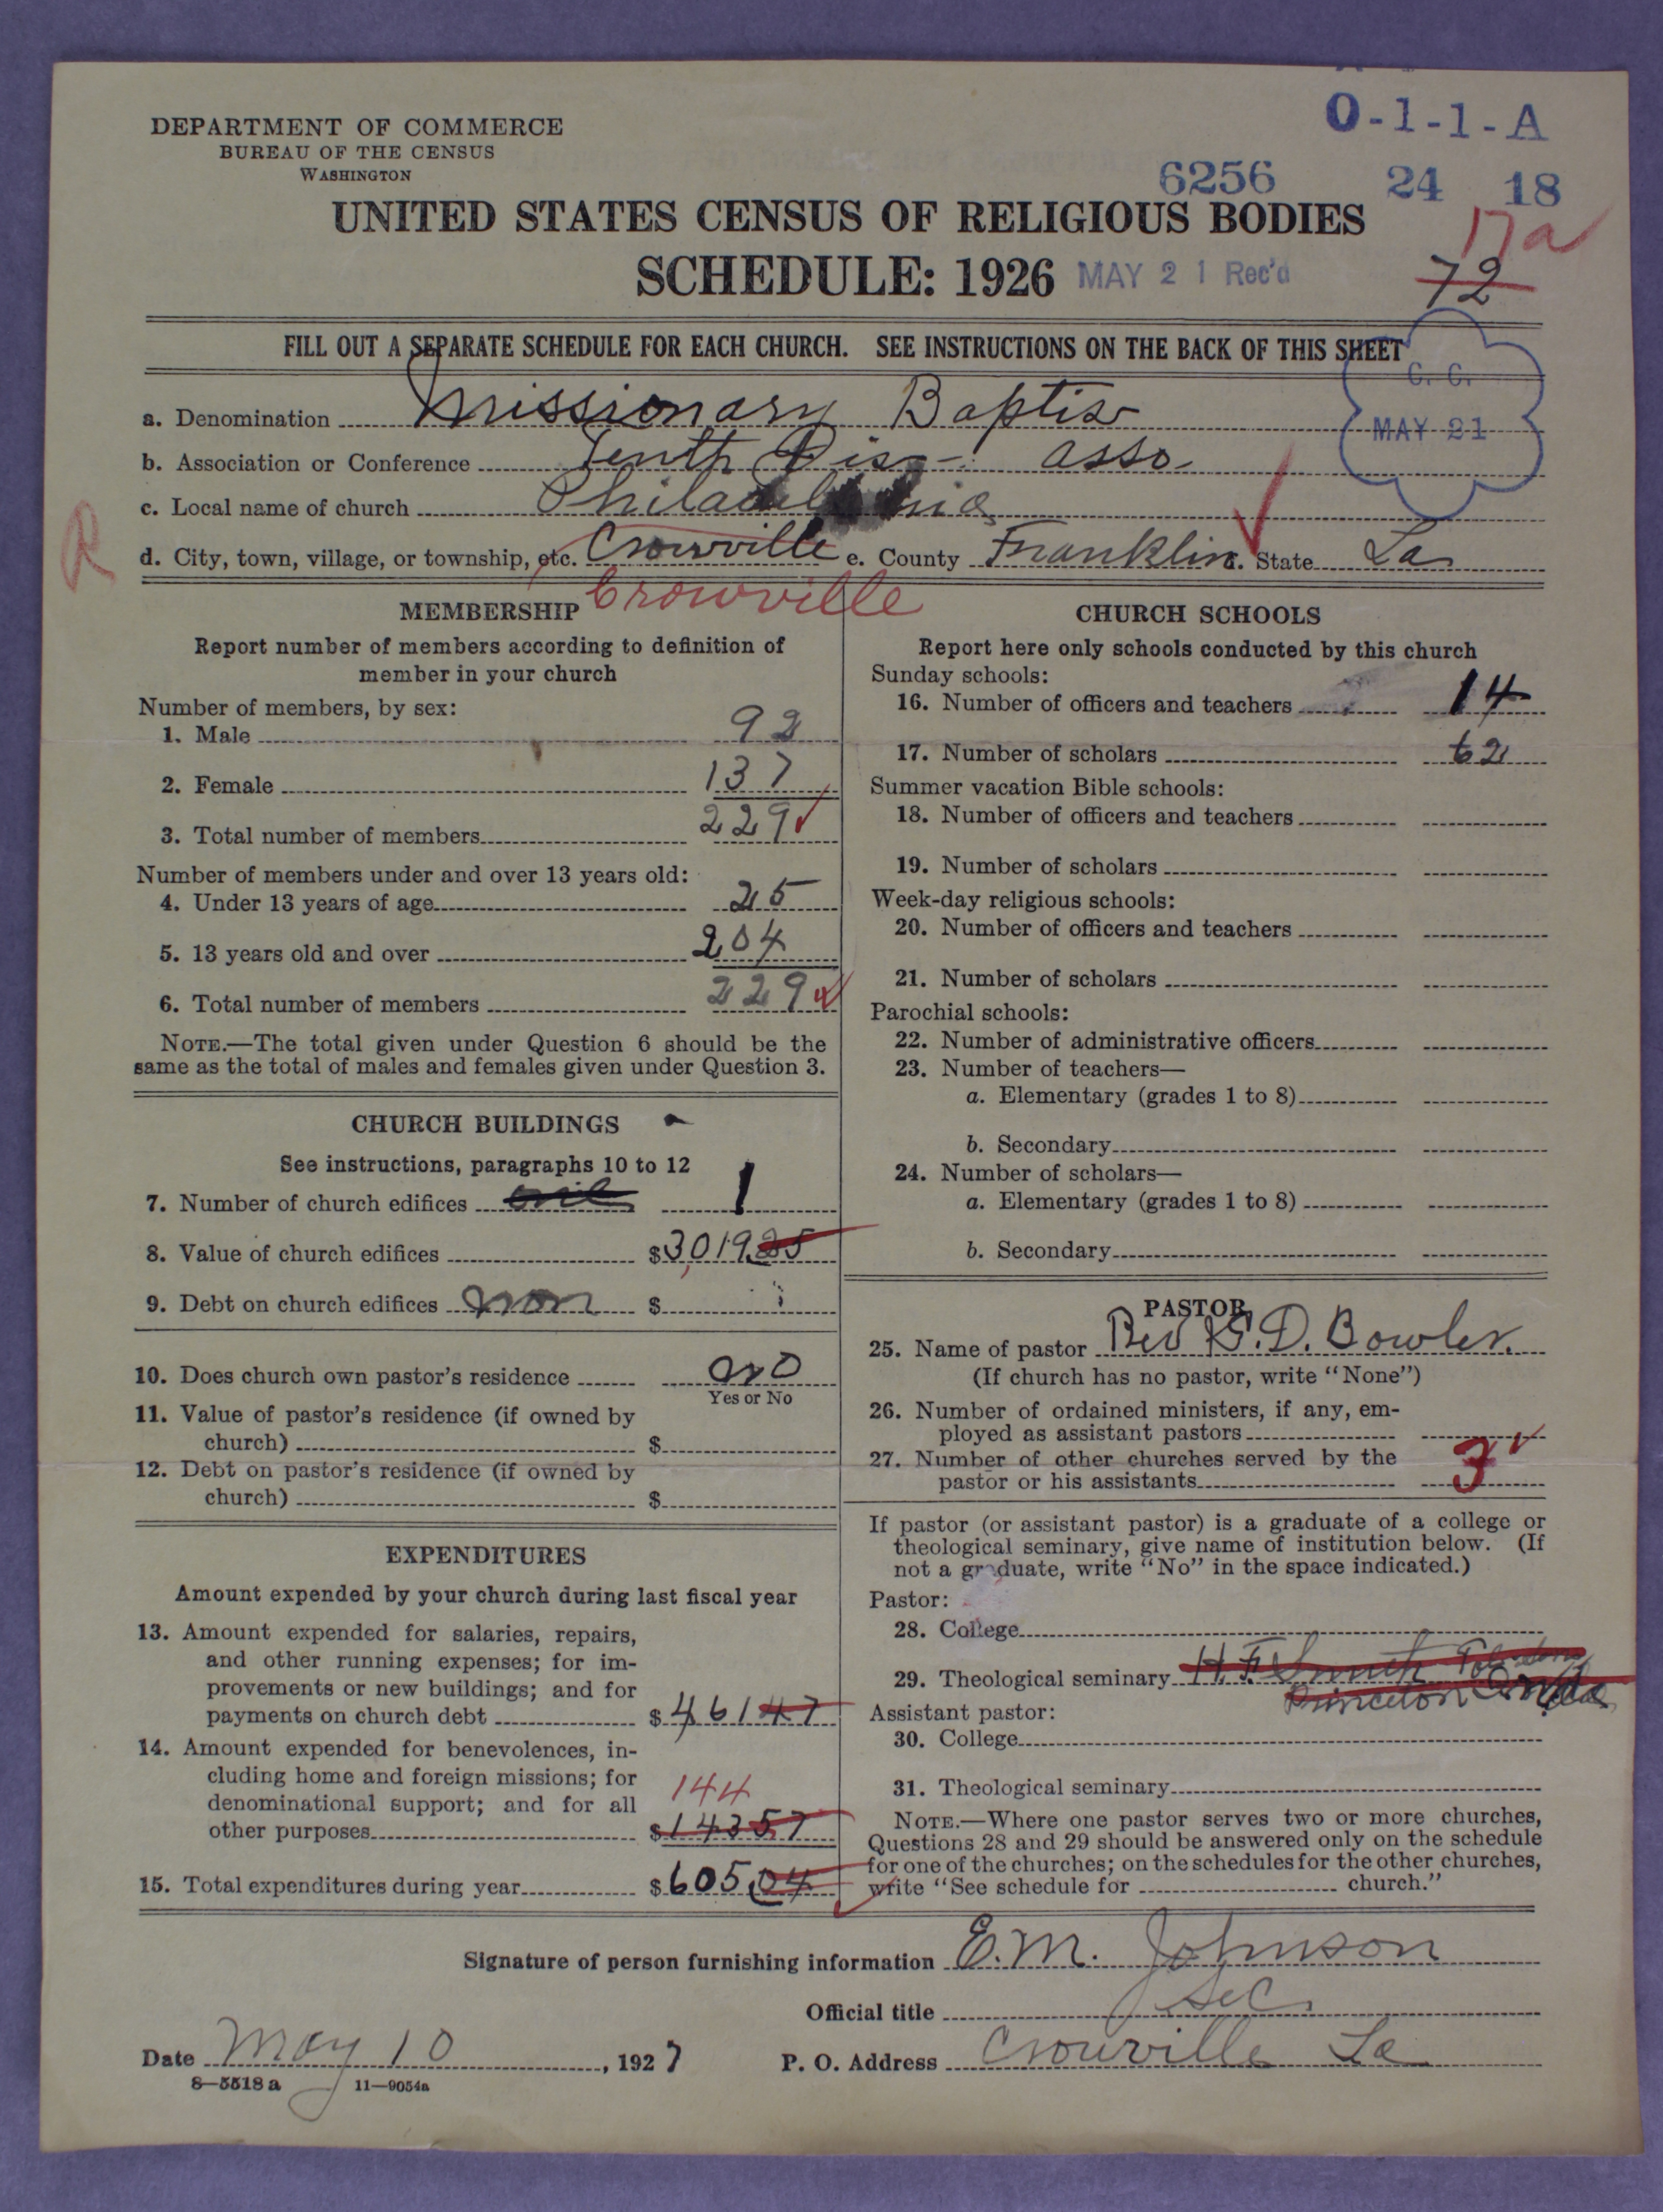 O-1-1-A
DEPARTMENT OF COMMERCE
BUREAU OF THE CENSUS
WASHINGTON
6256 24 18
UNITED STATES CENSUS OF RELIGIOUS BODIES
17a
SCHEDULE: 1926 MAY 21 Rec'd
72
FILL OUT A SEPARATE SCHEDULE FOR EACH CHURCH. SEE INSTRUCTIONS ON THE BACK OF THIS SHEET
C. C.
MAY 21
a. Denomination Missionary Baptist
b. Association or Conference Tenth Dis- asso.
c. Local name of church Philadelphia
R
d. City, town, village, or township, etc. Crowville e. County Franklin f. State La
Crowville
MEMBERSHIP
Report number of members according to definition of
member in your church
Number of members, by sex:
1. Male 92
2. Female 137
3. Total number of members 229
Number of members under and over 13 years old:
4. Under 13 years of age 25
5. 13 years old and over 204
6. Total number of members 229
NOTE.—The total given under Question 6 should be the
same as the total of males and females given under Question 3.
CHURCH BUILDINGS
See instructions, paragraphs 10 to 12
7. Number of church edifices 1
8. Value of church edifices $3,019.25
9. Debt on church edifices non $
10. Does church own pastor's residence no
Yes or No
11. Value of pastor's residence (if owned by
church) $
12. Debt on pastor's residence (if owned by
church) $
EXPENDITURES
Amount expended by your church during last fiscal year
13. Amount expended for salaries, repairs,
and other running expenses; for im-
provements or new buildings; and for
payments on church debt $461 47
14. Amount expended for benevolences, in-
cluding home and foreign missions; for
144
denominational support; and for all
other purposes $143 57
15. Total expenditures during year $605.04
CHURCH SCHOOLS
Report here only schools conducted by this church
Sunday schools:
16. Number of officers and teachers 14
17. Number of scholars 62
Summer vacation Bible schools:
18. Number of officers and teachers
19. Number of scholars
Week-day religious schools:
20. Number of officers and teachers
21. Number of scholars
Parochial schools:
22. Number of administrative officers
23. Number of teachers—
a. Elementary (grades 1 to 8)
b. Secondary
24. Number of scholars—
a. Elementary (grades 1 to 8)
b. Secondary
PASTOR
25. Name of pastor Rev D. Bowler.
(If church has no pastor, write "None")
26. Number of ordained ministers, if any, em-
ployed as assistant pastors
27. Number of other churches served by the
pastor or his assistants 3
If pastor (or assistant pastor) is a graduate of a college or
theological seminary, give name of institution below. (If
not a graduate, write "No" in the space indicated.)
Pastor:
28. College
29. Theological seminary H. F. Smith
Princeton
Assistant pastor:
30. College
31. Theological seminary
NOTE.—Where one pastor serves two or more churches,
Questions 28 and 29 should be answered only on the schedule
for one of the churches; on the schedules for the other churches,
write "See schedule for church."
Signature of person furnishing information E. M. Johnson
Official title Sec.
Date May 10, 1927 P. O. Address Crowville La
8—5518a 11—9054a